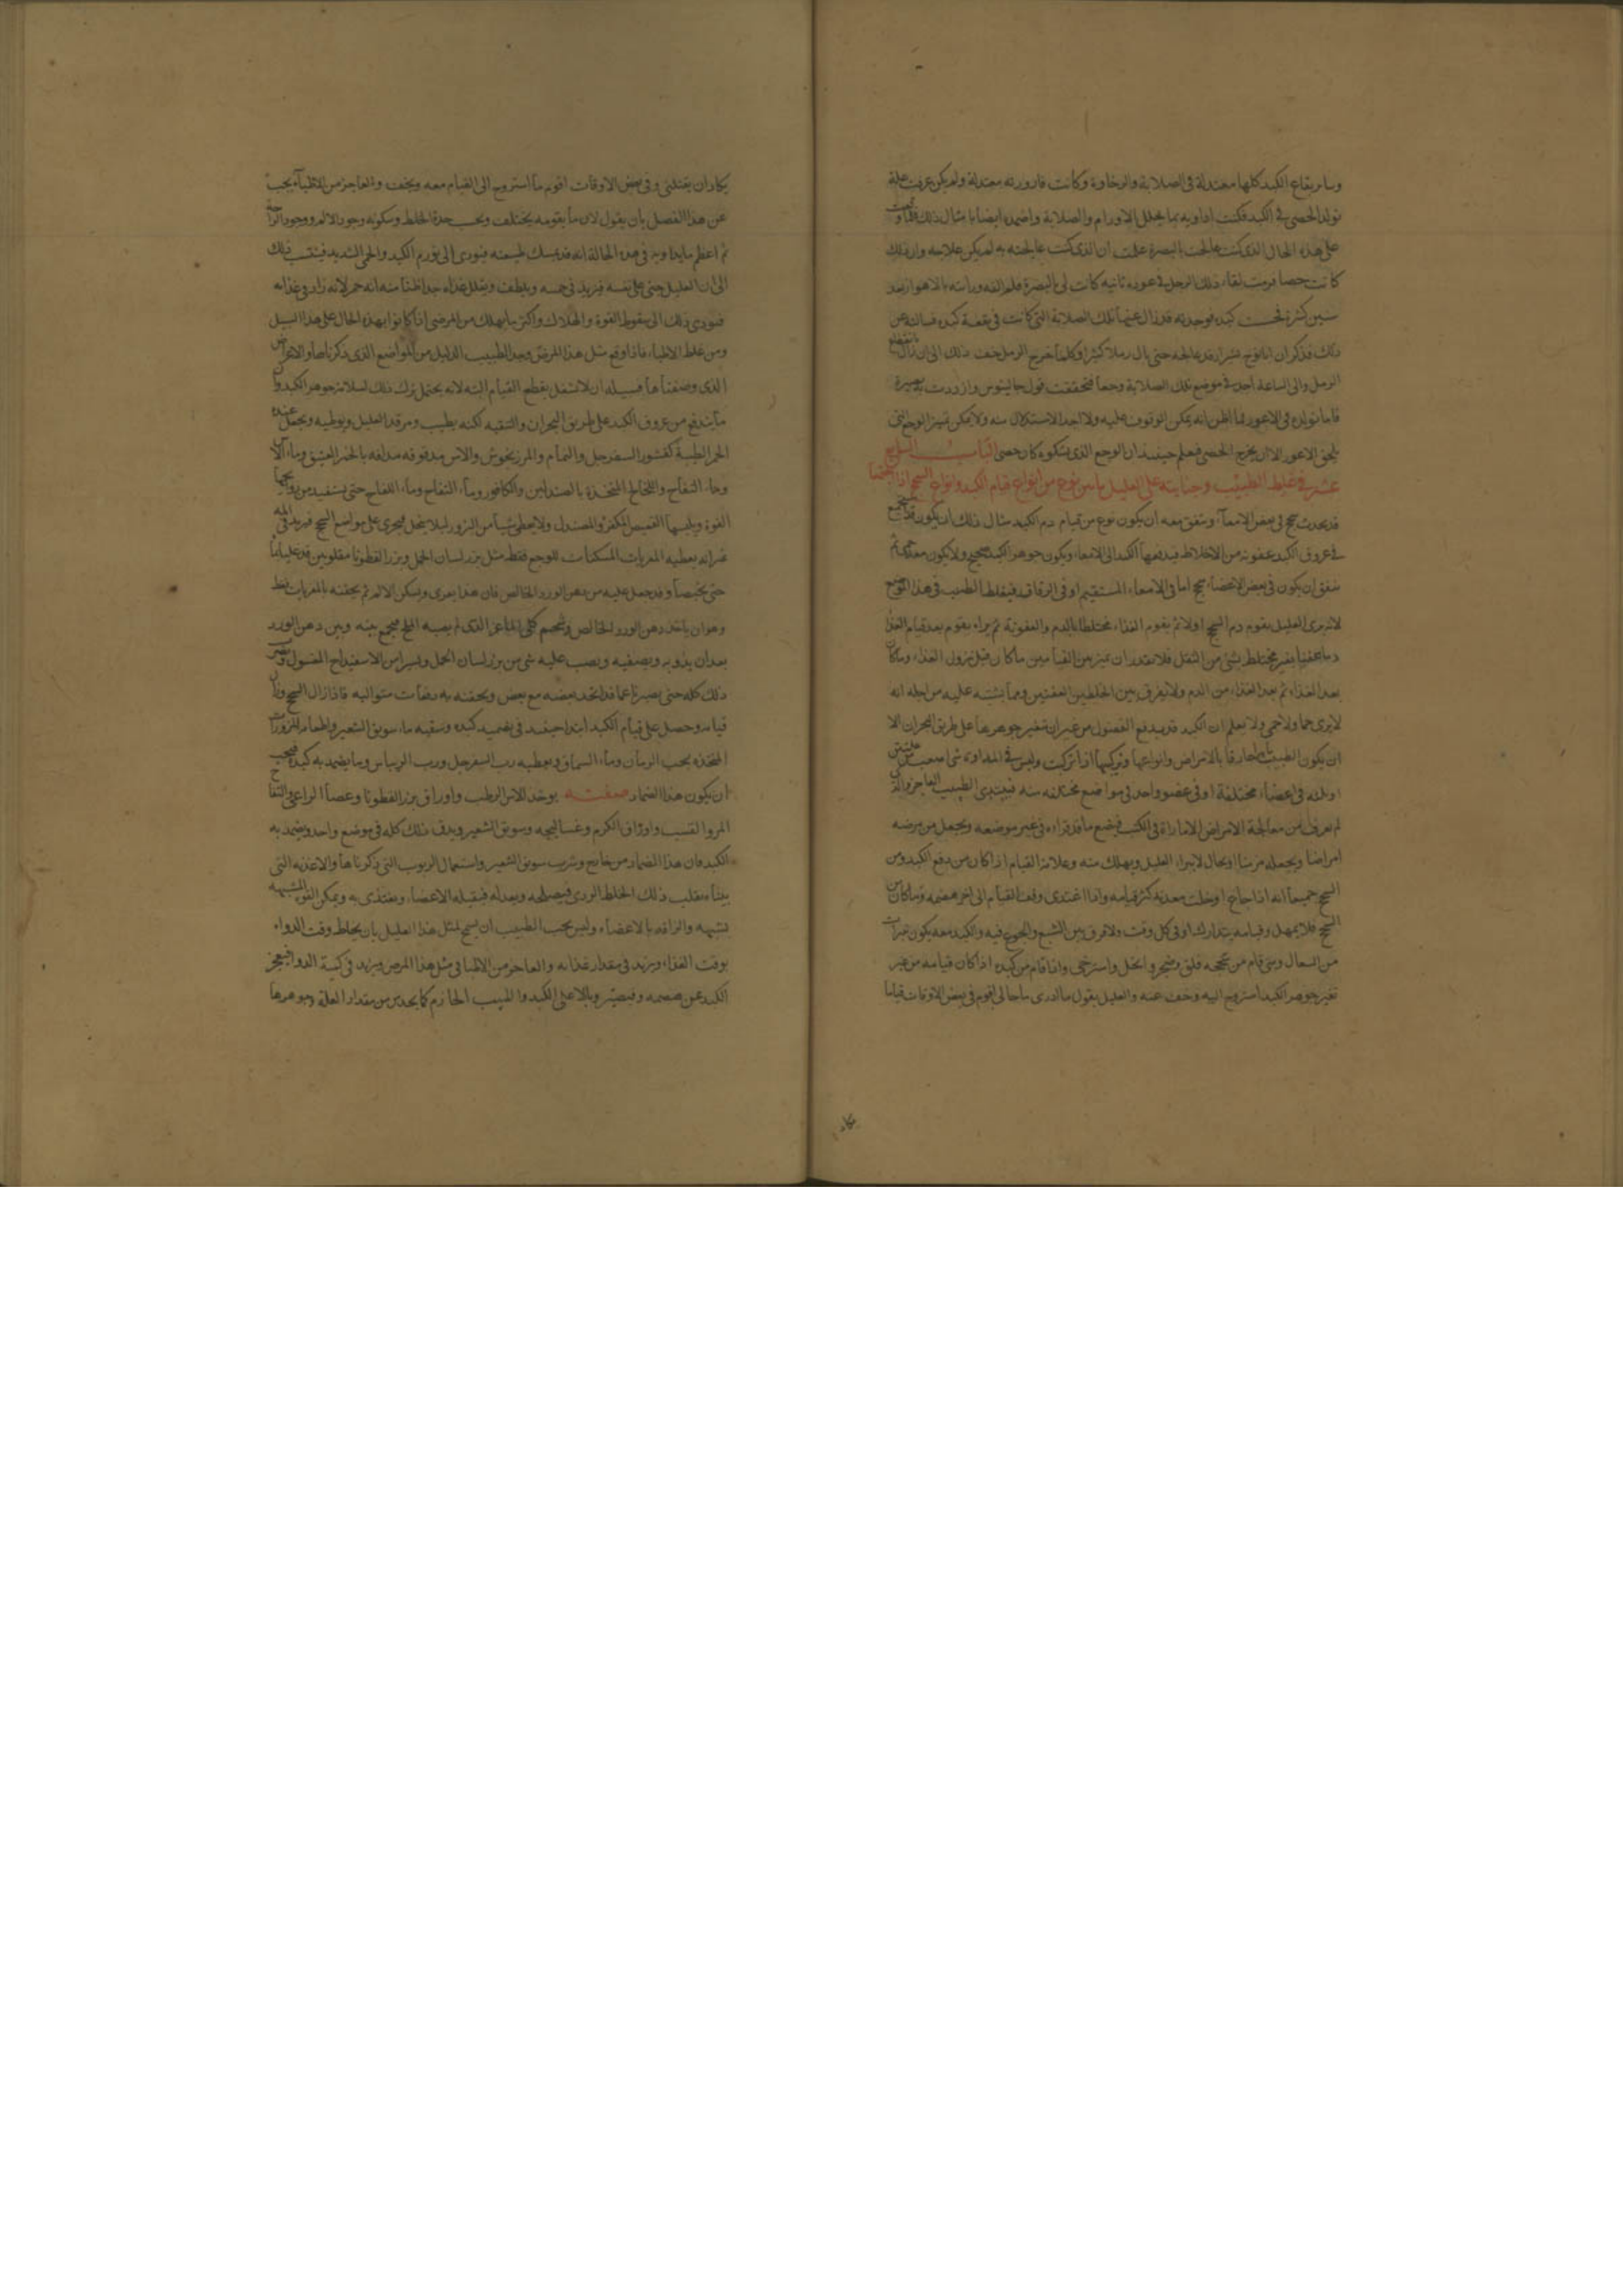 وسائر بقاع الكبد كلها معتدلة في الصلابة والرخاوة وكانت قارورته معتدلة ولم يكن عرفت علة
تولد الحصى في الكبد فكنت اداويه بما يحلل الاورام والصلابة واضمده ايضا بامثال ذلك
على هذه الحال الذي كنت عالجت بالبصرة علمت ان الذي كنت عالجته به لم يكن علاجه وان ذلك
كانت حصا فرمت لقاء ذلك الرجل في عودة ثانية كانت لي بالبصرة فلم الفه ورايته بالاهواز بعد
سنين كثيرة فجست كبده فوجدته قد زال عنها تلك الصلابة التي كانت في بقعة كبده فسالته عن
ذلك فذكر ان قد عالجه حتى بال رملا كثيرا وكلما خرج الرمل خف ذلك الى ان زال
الرمل والى الساعة اجد في موضع تلك الصلابة وجعا فتحققت قول جالينوس وازددت به بصيرة
فاما تولده في الاعور فما اظن انه يمكن الوقوف عليه ولا اجد الاستدلال منه ولا يمكن تمييز الوجع التي
يلحق الاعور الا ان يخرج الحصى فيعلم حينئذ ان الوجع الذي يشكوه كان حصى الباب السابع
عشر في غلط الطبيب وجنايته على العليل بامن نوع من انواع قيام الكبد وانواع السحج اذا
قد يحدث سحج في بعض الامعاء ويتفق معه ان يكون نوع من قيام دم الكبد مثال ذلك ان يكون قد اجتمع
في عروق الكبد عفونة من الاخلاط فيدفعها الكبد الى الامعاء ويكون جوهر الكبد صحيح ولا يكون معه
يتفق ان يكون في بعض الاعضاء سحج اما في الامعاء المستقيم او في الرقاق فيغلط الطبيب في هذا الموضع
لانه يرى العليل يقوم دم السحج اولا ثم يقوم الغذاء مختلطا بالدم والعفونة ثم يراه يقوم بعد قيام الغذا
دما عفنيا بغير مختلط بشي من الثفل فلا يقدر ان يميز بين القيامين ما كان قبل نزول الغذاء وما كان
بعد الغذاء ثم بعد الغذاء من الدم ولا يفرق بين الخلطين العفنين ومما يشتبه عليه من اجله انه
لا يرى حما ولا حمى ولا يعلم ان الكبد قد يدفع الفضول من غير ان يتغير جوهرها على طريق البحران الا
ان يكون الطبيب عارفا بالامراض وانواعها وتركيبها اذا تركبت وليس في المداواة شي اصعب من علتين
او ثلثه في اعضاء مختلفة او في عضو واحد في مواضع مختلفه منه فيبتدى الطبيب العاجز والذي
لم يعرف من معالجة الامراض الا ما راه في الكتب فيضع ما قد قراه في غير موضعه ويجعل من مرضه
امراضا ويجعله مزمنا او بحال لا يبرا العليل ويهلك منه وعلامة القيام اذا كان من دفع الكبد ومن
السحج جميعا انه اذا جاع او خلت معدته كثر قيامه واذا اغتذى وقف القيام الى اخر هضمه وما كان من
السحج فلا يمهل وقيامه يتدارك او في كل وقت ولا فرق بين الشبع والجوع فيه والكبد معه يكون
من السعال ومتى قام من سحجه قلق وضجر وانحل واسترخى واذا قام من كبده اذا كان قيامه من غير
تغير جوهر الكبد استروح اليه وخف عنه والعليل يقول ما ادرى ما حالي اقوم في بعض الاوقات قياما
يكاد ان يقتلني وفي بعض الاوقات اقوم ما استروح الى القيام معه ويخف والعاجز من الاطباء يجيب
عن هذا الفصل بان يقول لان ما يقومه يختلف وبحسب حدة الخلط وسكونه وجود الالم ووجود الراحة
ثم اعظم ما يداويه في هذه الحالة انه قد يمسك طبيعته فيودى الى تورم الكبد والحمى الشديد فينسب ذلك
الى ان العليل جنى على نفسه فيزيد في حميته ويلطف ويقلل غذاءه جدا ظنا منه انه حمى لانه زاد في غذائه
فيودى ذلك الى سقوط القوة والهلاك واكثر ما يهلك من المرضى اذا كانوا بهذه الحال على هذا السبيل
ومن غلط الاطباء فاذا وقع مثل هذا المرض وجد الطبيب الدليل من المواضع الذي ذكرناها والاعراض
الذي وصفناها فسبيله ان لا يشتغل بقطع القيام البته لانه يحتمل ترك ذلك لسلامة جوهر الكبد وان
ما يندفع من عروق الكبد على طريق البحران والتنقيه لكنه يطيب ومرقد العليل ويوطيه ويجعل عنده
الطيبة كقشور السفرجل والنمام والمرزنجوش والاس مدقوقه مدافه بالخمر العتيق وماء الاس
وماء التفاح واللخالخ المتخذة بالصندلين والكافور وماء التفاح وماء اللفاح حتى يستفيد من روائحها
القوة ويلبسها القميص المكفر والمصندل ولا يعطى شيا من البزور لئلا ينحل فيجرى على مواضع السحج فيزيد في المه
غير انه يعطيه المغريات المسكنات للوجع فقط مثل بزر لسان الحمل وبزر القطونا مقلوين قد غليا بماء
حتى يختصا وقد جعل عليه من دهن الورد الخالص فان هذا يغرى ويسكن الالم ثم يحقنه بالمغريات فقط
وهو ان ياخذ دهن الورد الخالص وشحم كلى الماعز الذي لم يصبه الملح فيجمع بينه وبين دهن الورد
بعد ان يذوبه ويصفيه ويصب عليه شي من بزر لسان الحمل ويسيرا من الاسفيداج المغسول ويضرب
ذلك كله حتى يصير ناعما قد اتحد بعضه مع بعض ويحقنه به دفعات متواليه فاذا زال السحج وزال
قيامه وحصل على قيام الكبد ابتدا حينئذ في تضميد كبده وسقيه ماء سويق الشعير واطعامه المزورات
المتخذه بحب الرمان وماء السماق ويعطيه رب السفرجل ورب الريباس وما يضمد به كبده فيجب
ان يكون هذا الضماد صفته يوخذ الاس الرطب واوراق بزر القطونا وعصا الراعي والتفاح
المر والقسب واوراق الكرم وعساليجه وسويق الشعير ويدق ذلك كله في موضع واحد ويضمد به
الكبد فان هذا الضماد من خارج وشرب سويق الشعير واستعمال الربوب التي ذكرناها والاغذيه التي
بيناه يقلب ذلك الخلط الردى فيصلحه ويعدله فيقبله الاعضاء ويغتذى به ويمكن القوة المشبهه
تشبهه والزاقه بالاعضاء وليس يجب الطبيب ان يسمح لمثل هذا العليل بان يخلط وقت الدواء
بوقت الغذاء ويزيد في مقدار غذائه والعاجز من الاطبا في مثل هذا المرض ويزيد في كمية الدوا فيعجز
الكبد عن هضمه وفيصير وبالا على الكبد والطبيب الحازم كما يحدس من مقدار العلة وجوهرها